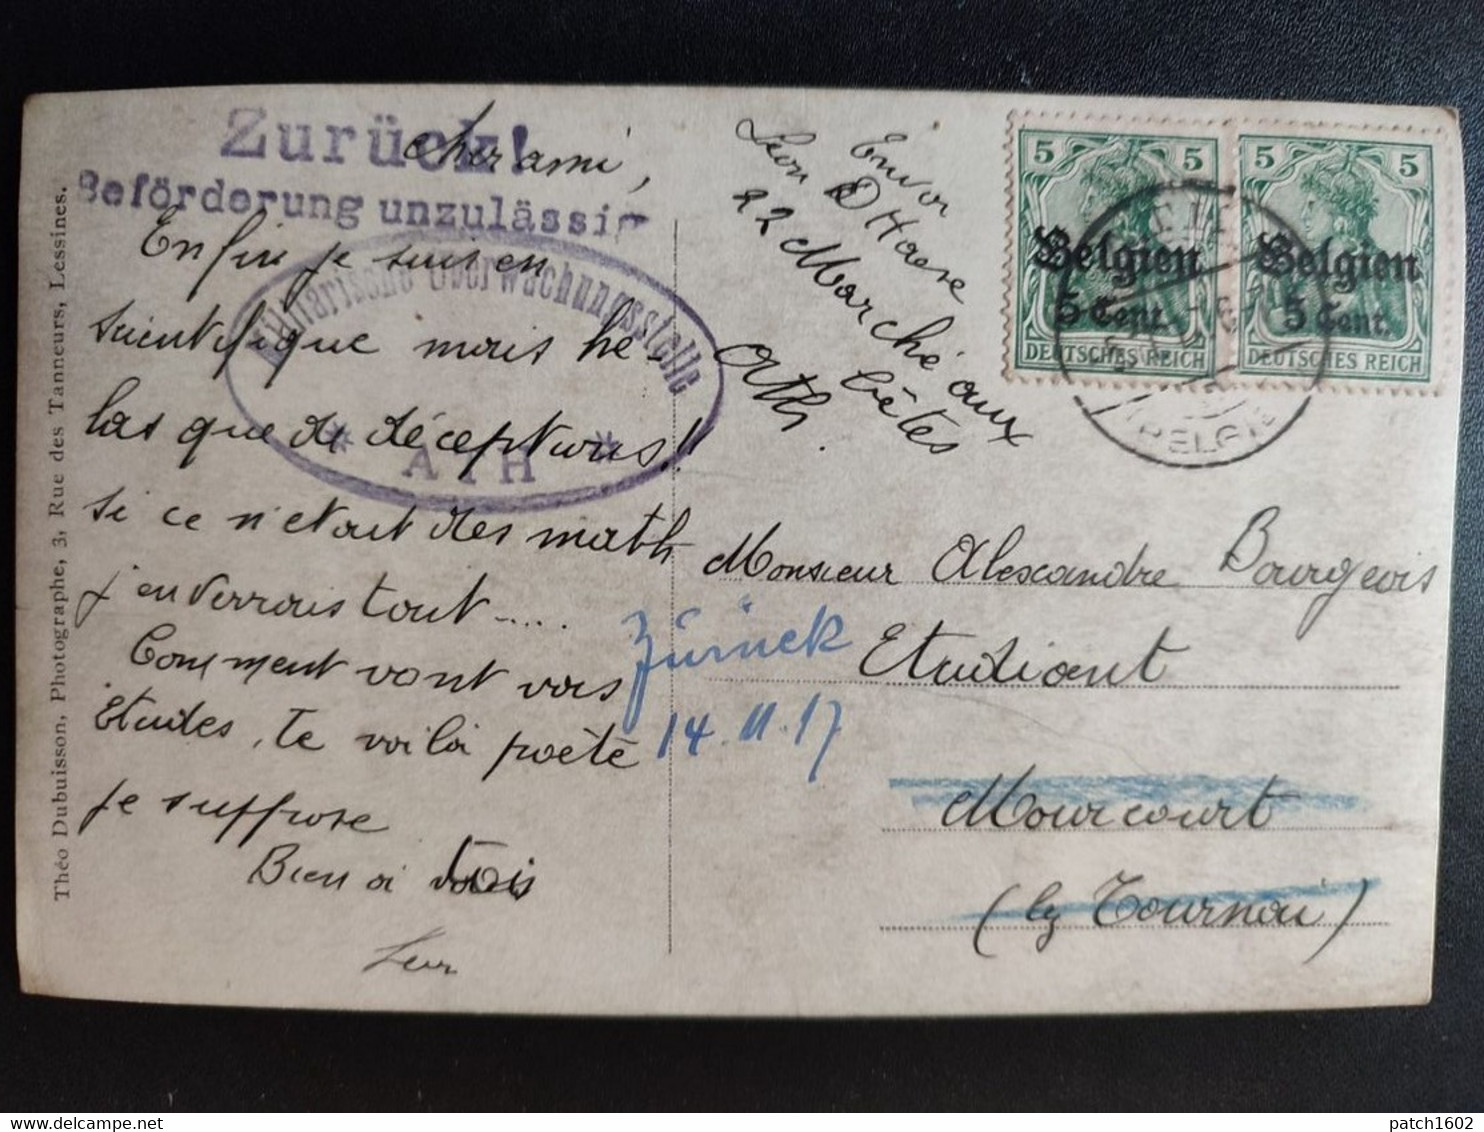 Zurück!
Beförderung unzulässig
Militärische Überwachungsstelle
* ATH *
cher ami,
Enfin je suis en
scientifique mais hé-
las que de déceptions!!
si ce n'etait des math
j'en verrais tout.....
Comment vont vos
études, te voilà poète
je suppose
Bien à tois
Leon
Envoi
Léon D Haese
22 Marché aux
bêtes
Ath.
5 5
Belgien
5 Cent.
DEUTSCHES REICH
5 5
Belgien
5 Cent.
DEUTSCHES REICH
(BELGIEN
Monsieur Alexandre Bourgeois
Etudiant
Mourcourt
(lz Tournai)
Zürück
14.11.17
Théo Dubuisson, Photographe, 3, Rue des Tanneurs, Lessines.
patch1602